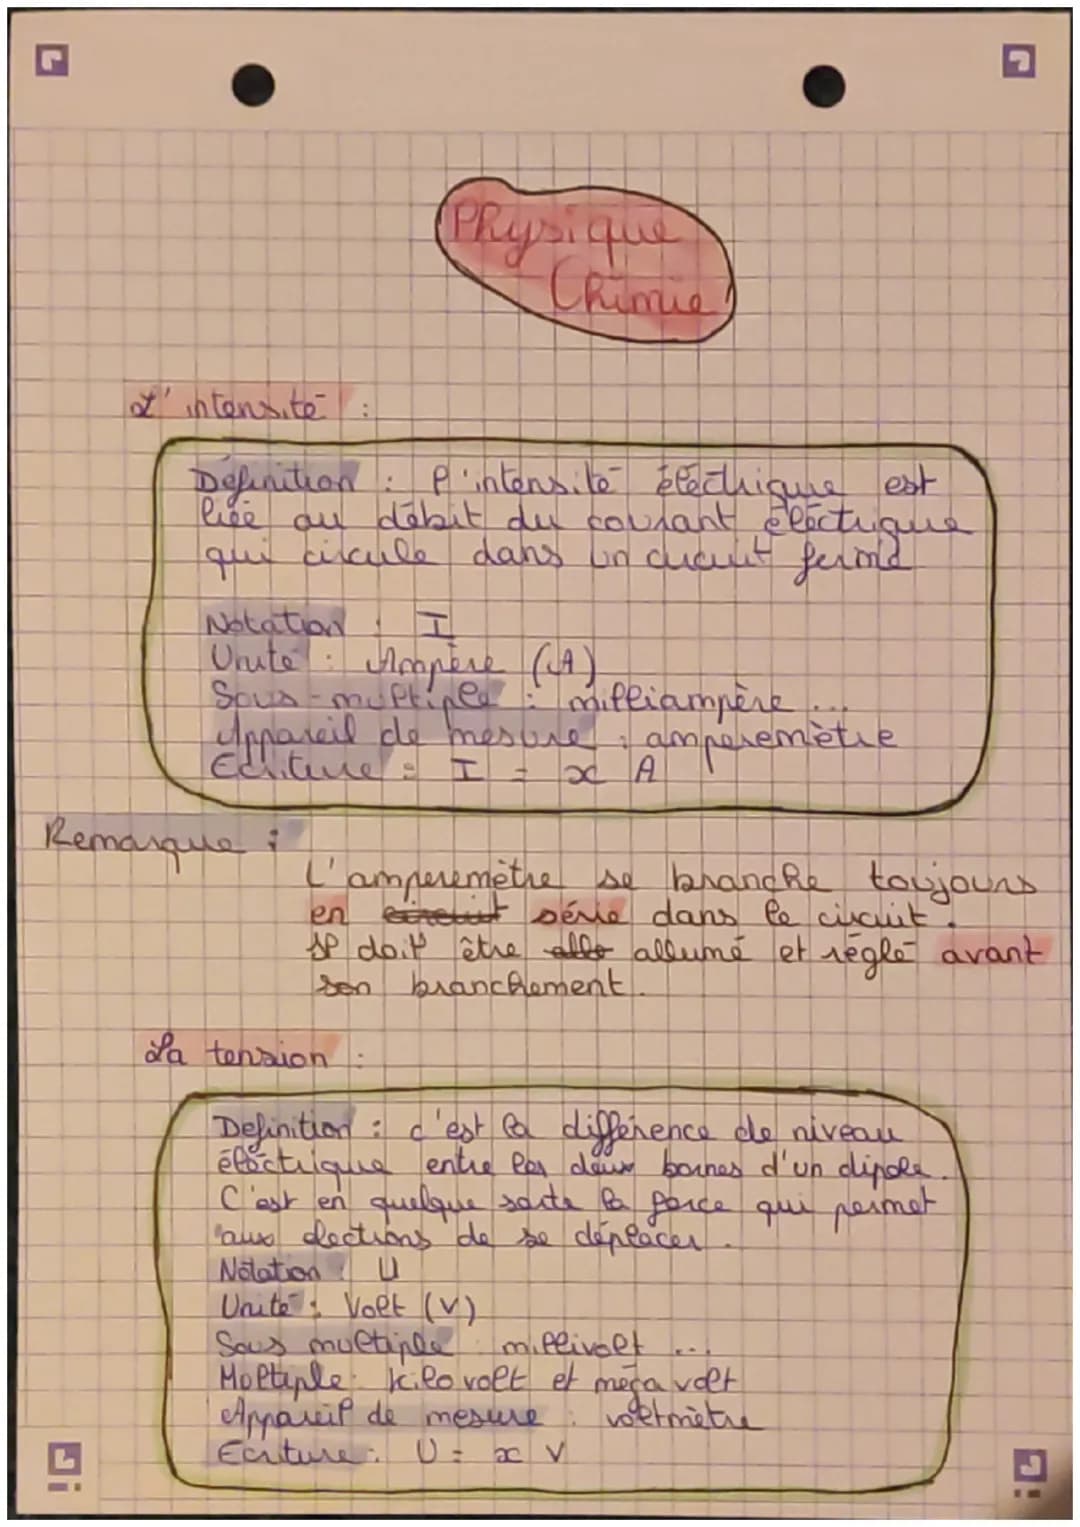 Physique
Chimie
L'intensité :
Définition : l'intensité électrique est
liée au débit du courant électrique
qui circule dans un circuit fermé
Notation : I
Unité : Ampère (A)
Sous-multiple : milliampère ...
Appareil de mesure : amperemètre
Ecriture : I = x A
Remarque :
L'amperemètre se branche toujours
en circuit série dans le circuit.
Il doit être allo allumé et réglé avant
son branchement.
La tension :
Definition : c'est la différence de niveau
éléctrique entre les deux bornes d'un dipole.
C'est en quelque sorte la force qui permet
aux electrons de se déplacer.
Notation : U
Unité : Volt (V)
Sous multiple : millivolt ...
Moltiple : Kilo volt et méga volt
Appareil de mesure : voltmètre
Ecriture : U = x V